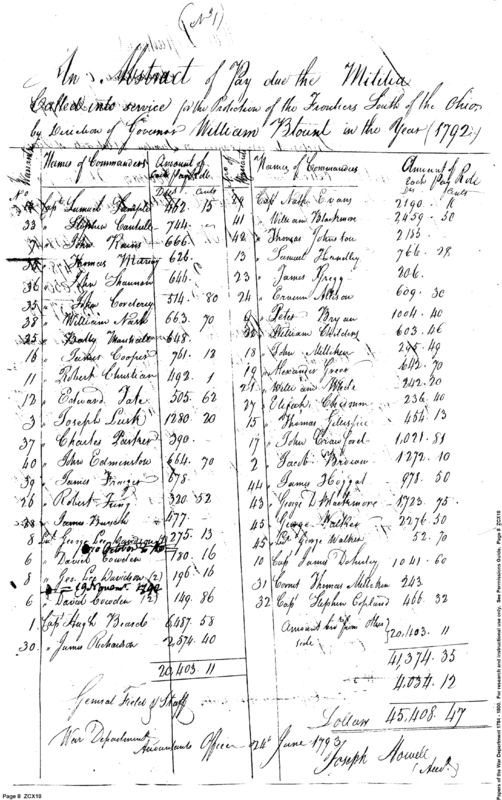 (No. 1)
An Abstract of Pay due the Militia
Called into service for the Protection of the Frontiers South of the Ohio
by direction of Governor William Blount in the Year (1792)
No. of Warrants
Names of Commanders
Amount of each Pay Role
Dolls Cents
Capt. Samuel 462. 15
33 " Stephen Cantrell 744. -
" John Rains 666.
" Thomas Murray 626.
36 " John Shannon 644.
35 " John 574. 80
38 " William Nash 663. 70
25 " 648.
16 " James Cooper 761. 13
11 " Robert Christian 492. 1
12 " Edward Tate 505. 62
3 " Joseph Lusk 1280 20
37 " Charles Parker 390.
40 " John Edmonston 664. 70
39 " James 678.
26 " Robert King 320. 52
28 " James 477.
8 George Lee Davidson 275. 13
6 " David Cowden 180. 16
8 " Geo. Lee Davidson (2) 196. 16
6 " David Cowden (2) 149. 86
1. Capt Hugh Beard 6487. 58
30. " James Richardson 2,574. 40
20,403. 11
General Field & Staff
No. of Warrants
Names of Commanders
Amount of each Pay Role
Ds. Cents
29 Capt. Nath. Evans 2190.
41 " William Blackmore 2459. 50
42 " Thomas Johnston 2155.
13 " Samuel Handley 766. 28
23 " James Gregg 206.
24 " 609. 30
9 " Peter Bryan 1004. 40
" William Childers 603. 46
18 " John Milliken 49
19 " Alexander Greer 642. 70
21 " William White 242. 20
27 " Elijah Chisum 236. 40
15 " Thomas Gillespie 454. 13
17 " John Crawford 1,021. 81
2 " Jacob Brown 1272. 10
44 " James Hoggat 978. 50
43 George D. Blackmore 1723. 75
45 " George Walker 2276. 50
45 " George Walker 52. 70
10 Capt James Doherty 1041. 60
31 Cornet Thomas Milliken 243
32 Capt Stephen Copland 466. 32
Amount from other side
20,403. 11
41,374. 35
4,034. 12
Dollars 45,408. 47
War Department
Accountants Office 24th June 1793
Joseph Howell
(Acct.)
Page 8 ZCX18
Papers of the War Department 1784 - 1800. For research and instructional use only. See Permissions Guide. Page 8 ZCX18